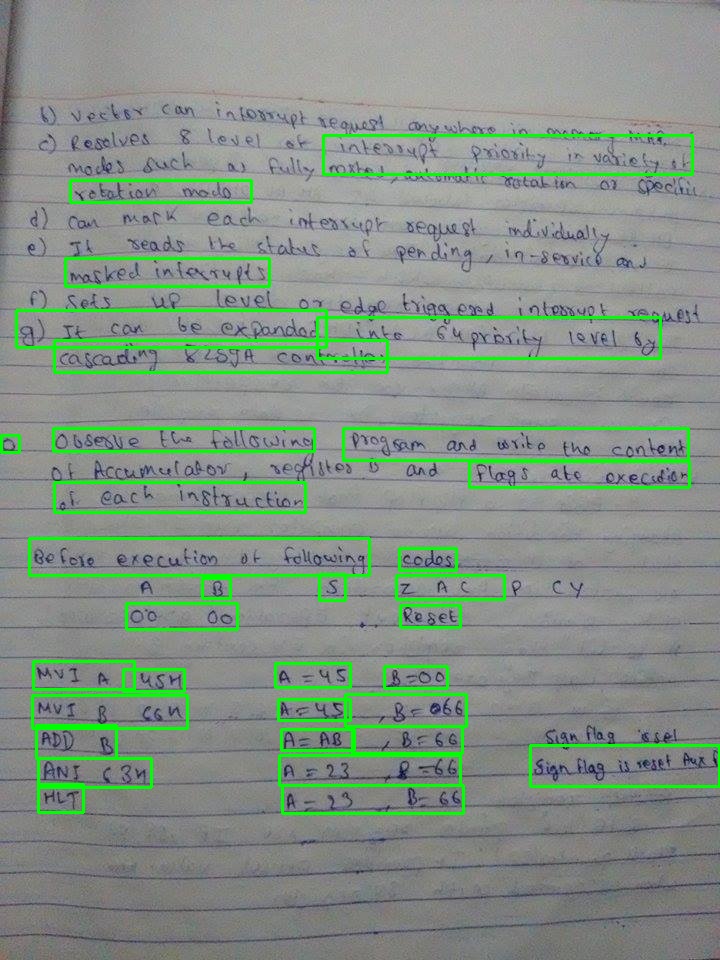 b) Vector can interrupt request anywhere in memory
c) Resolves 8 level of interrupt priority in variety of
modes such as fully nested, automatic rotation or specific
rotation mode
d) can mask each interrupt request individually
e) It reads the status of pending, in-service and
masked interrupts
f) Sets up level or edge triggered interrupt request
g) It can be expanded into 64 priority level by
cascading 8259A controller
Q Observe the following program and write the content
of Accumulator, register B and flags ate execution
of each instruction
Before execution of following codes
A B S Z AC P CY
00 00 Reset
MVI A 45H A = 45 B=00
MVI B 66H A = 45, B= 066
ADD B A = AB, B= 66 Sign flag is set
ANI 63H A = 23, B = 66 Sign flag is reset Aux
HLT A = 23, B= 66